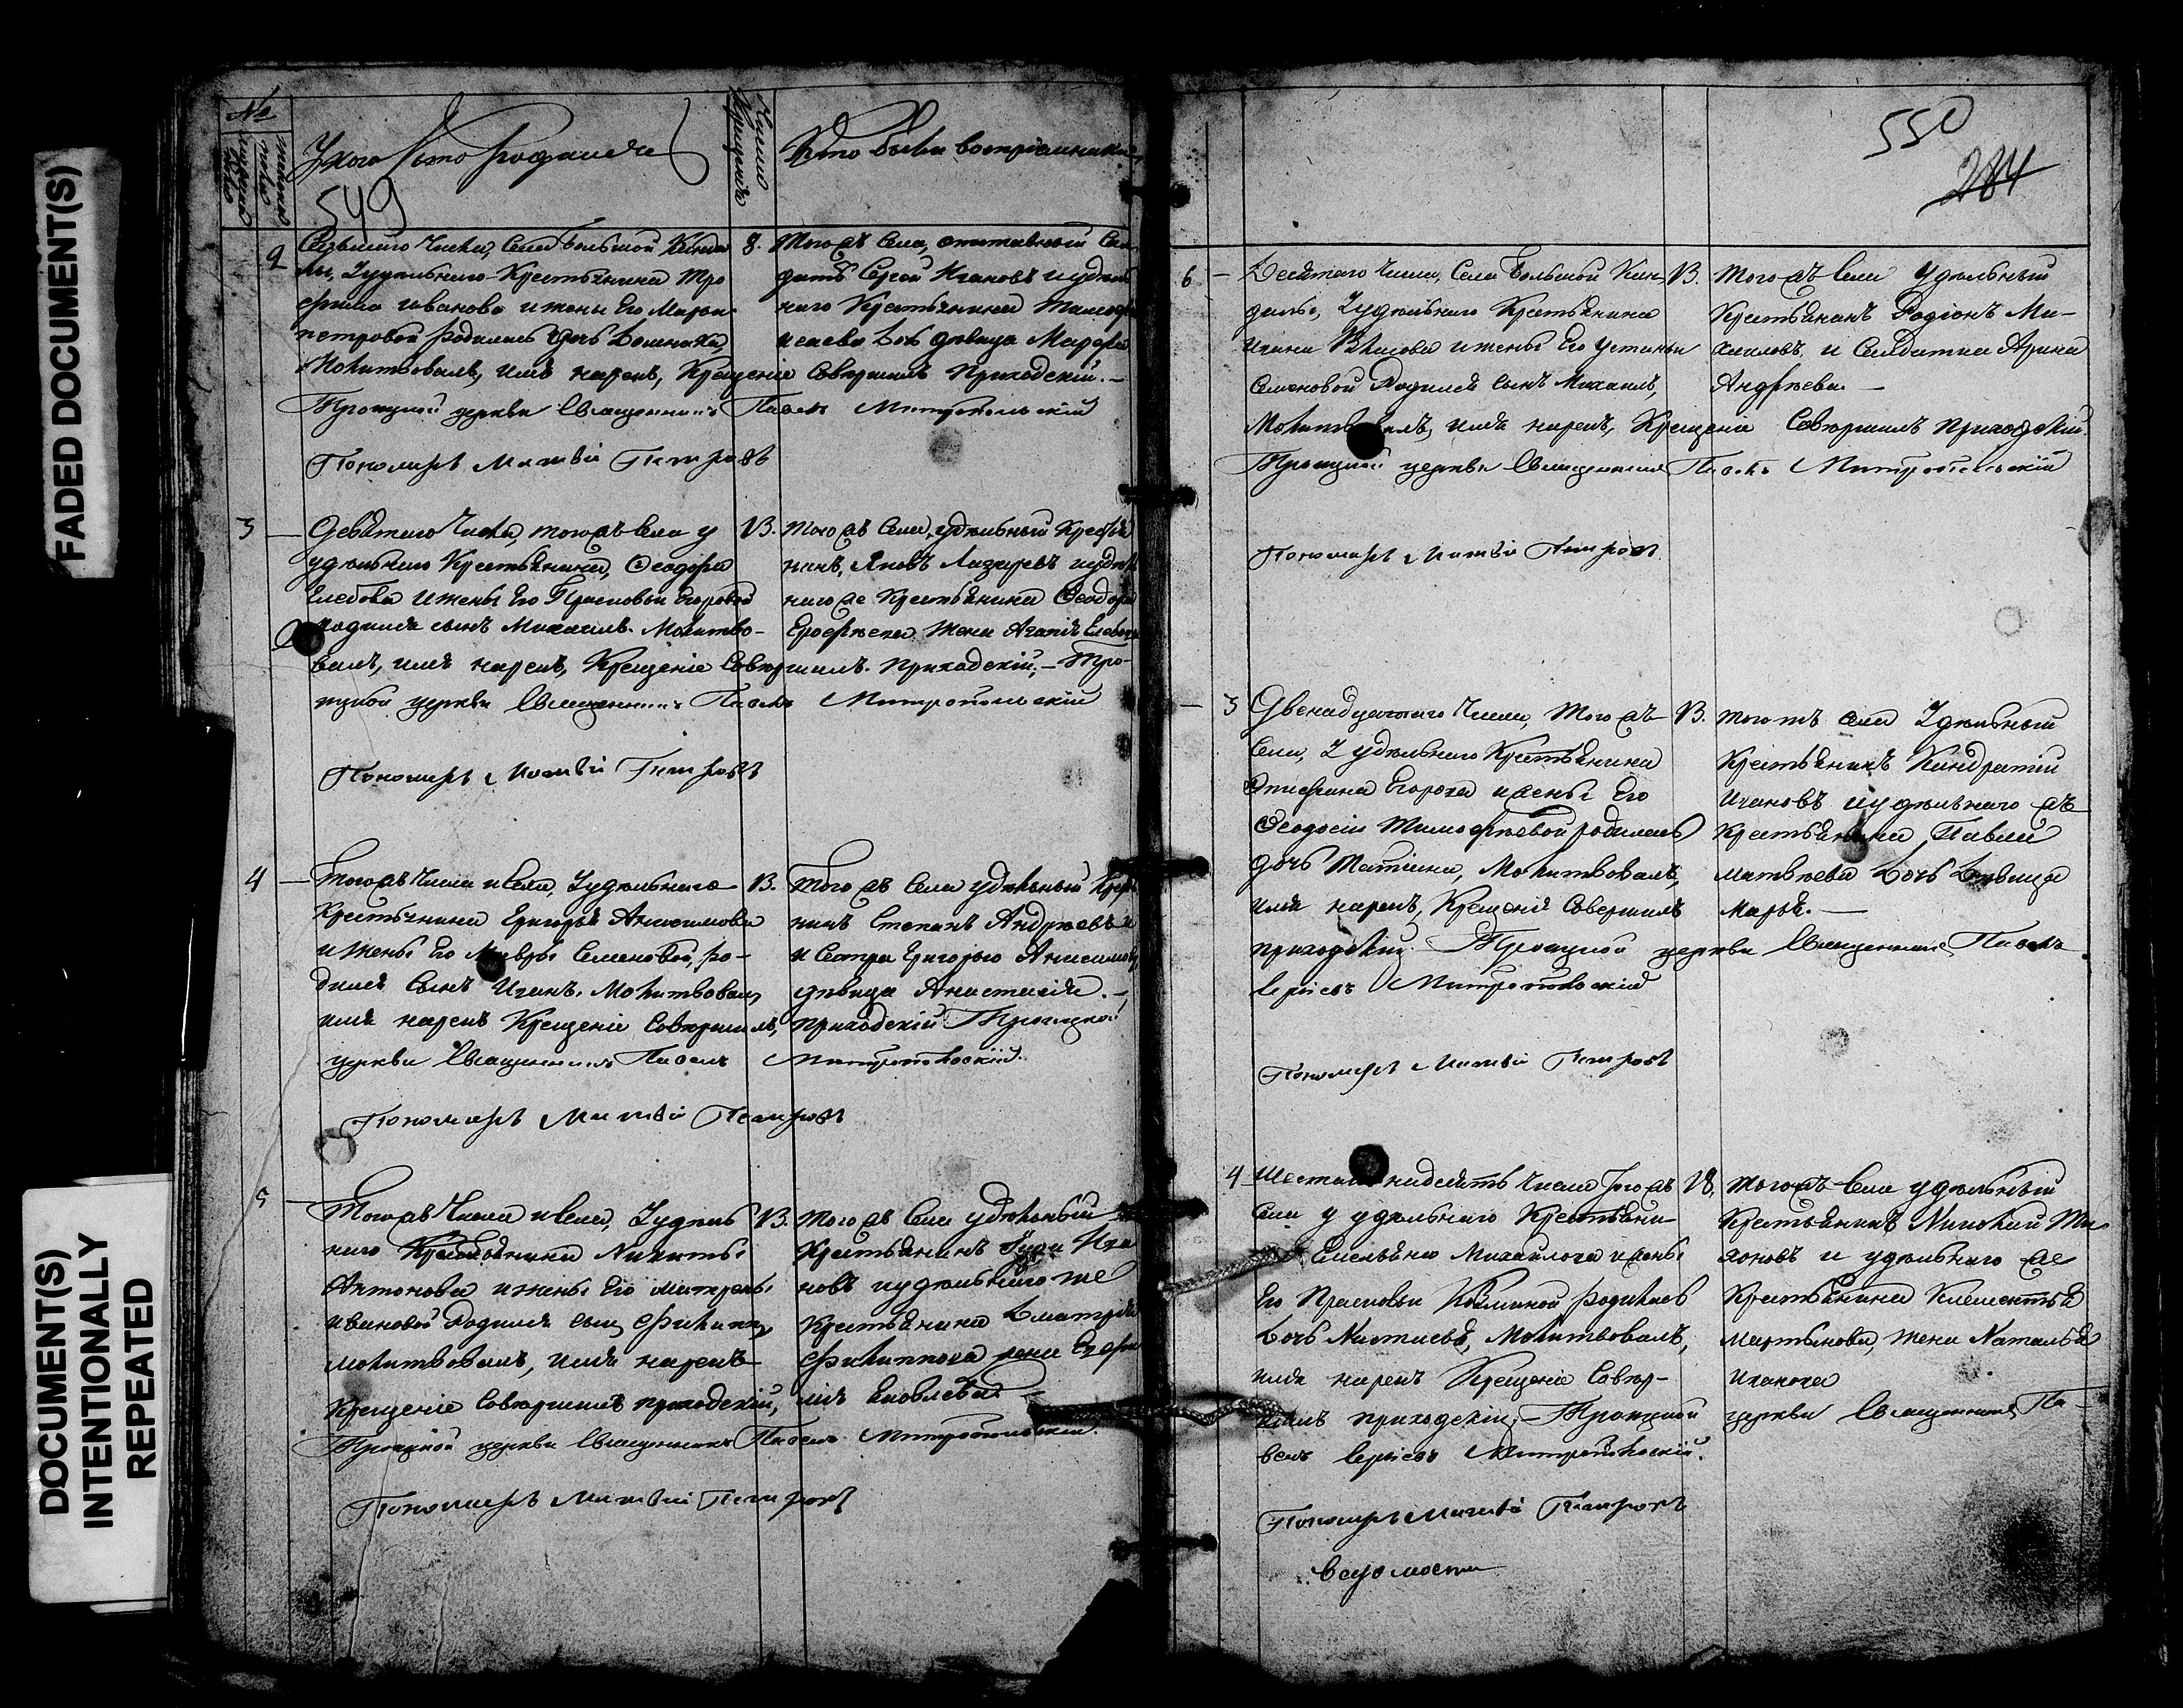 FADED DOCUMENT(S)
DOCUMENT(S)
INTENTIONALLY
REPEATED
№
мужеска
женска
У кого кто родился
Число
крещенія
Кто были воспріемники
549
2
Седьмаго числа, села Большой Кинда
лы, У удѣльнаго крестьянина Тро
фима Иванова и жены Его Марьи
петровой родилась дочь Домника,
Молитвовалъ, имя нарекъ, Крещеніе совершилъ приходскій.—
Троицкой церкви Священникъ Павелъ Митропольскій
Пономарь Матвій Петровъ
8.
Тогожъ села, отставной Сол
датъ Сергей Ивановъ и удѣль
наго Крестьянина
исаева дочь дѣвица Марфа
3
Девятаго числа, тогожъ села у
удѣльнаго Крестьянина, Феодора
Глебова и жены Его Прасковьи Егоровой
родился сынъ Михаилъ. Молитво-
валъ, имя нарекъ, Крещеніе совершилъ приходскій,— Тро-
ицкой церкви Священникъ Павелъ Митропольскій
Пономарь Матвій Петровъ
В.
Тогожъ села, удѣльный крестья
нинъ, Яковъ Лазаревъ и удѣль
наго же крестьянина Феодора
Ерофеева жена
4
Тогожъ числа и села, У удѣльнаго
Крестьянина Григорья Анисимова
и жены Его Мавры Семеновой, ро-
дился сынъ Иванъ. Молитвовалъ,
имя нарекъ Крещеніе совершилъ, приходскій Троицкой
церкви Священникъ Павелъ Митропольскій.
Пономарь Матвій Петровъ
В.
Того жъ села удѣльный Крестья
нинъ Степанъ Андреевъ
и сестра Григорью Анисимову
дѣвица Анастасія.—
5
Тогожъ числа и села, У удѣль
наго Крестьянина Никиты
Антонова и жены Его матрены
ивановой Родился сынъ филиппъ,
молитвовалъ, имя нарекъ
Крещеніе совершилъ приходскій,
Троицкой церкви Священникъ Павелъ Митропольскій.
Пономарь Матвій Петровъ
В.
Того жъ села удѣльный
Крестьянинъ Гури Ива
новъ и удѣльнаго же
крестьянина Дматрія
филиппова жена Евфи
мія Яковлева.—
550
284
6
Десятаго числа, Села Большой Кин-
далы, У удѣльнаго Крестьянина
Ивана Власова и жены Его Устиньи
Семеновой Родился сынъ Михаилъ,
Молитвовалъ, имя нарекъ, Крещеніе Совершилъ приходскій.
Троицкой церкви Священникъ Павелъ Митропольскій
Пономарь Матвій Петровъ
В.
Того жъ села Удѣльный
Крестьянинъ Родіонъ Ми-
хаиловъ, и Солдатка Арина
Андреева.—
3
Двенадцатаго числа, Того жъ
села, У удѣльнаго Крестьянина
Епифана Егорова и жены Его
Феодосіи Тимофеевой родилась
дочь Татіана, Молитвовалъ,
имя нарекъ, Крещеніе Совершилъ
приходскій. Троицкой церкви Священникъ Павелъ
Сергіевъ Митропольскій
Пономарь Матвій Петровъ
В.
того жъ села Удѣльный
Крестьянинъ Киндратій
Ивановъ и удѣльнаго жъ
крестьянина Павла
матвеева Дочь Девица
Марья.—
4
Шестагонадесять числа тогожъ
села у удѣльнаго Крестьяни-
Емельяна Михайлова и жены
Его Прасковьи Козминой родилась
Дочь Настасья, Молитвовалъ,
имя нарекъ Крещеніе Совер-
шилъ приходскій,— Троицкой церкви Священникъ Па-
велъ Сергіевъ Митропольскій.
Пономарь Матвій Петровъ
В.
тогожъ села удѣльный
Крестьянинъ Николай Ти
хоновъ и удѣльнаго же
Крестьянина Клементья
Мартынова, жена Наталья
Иванова